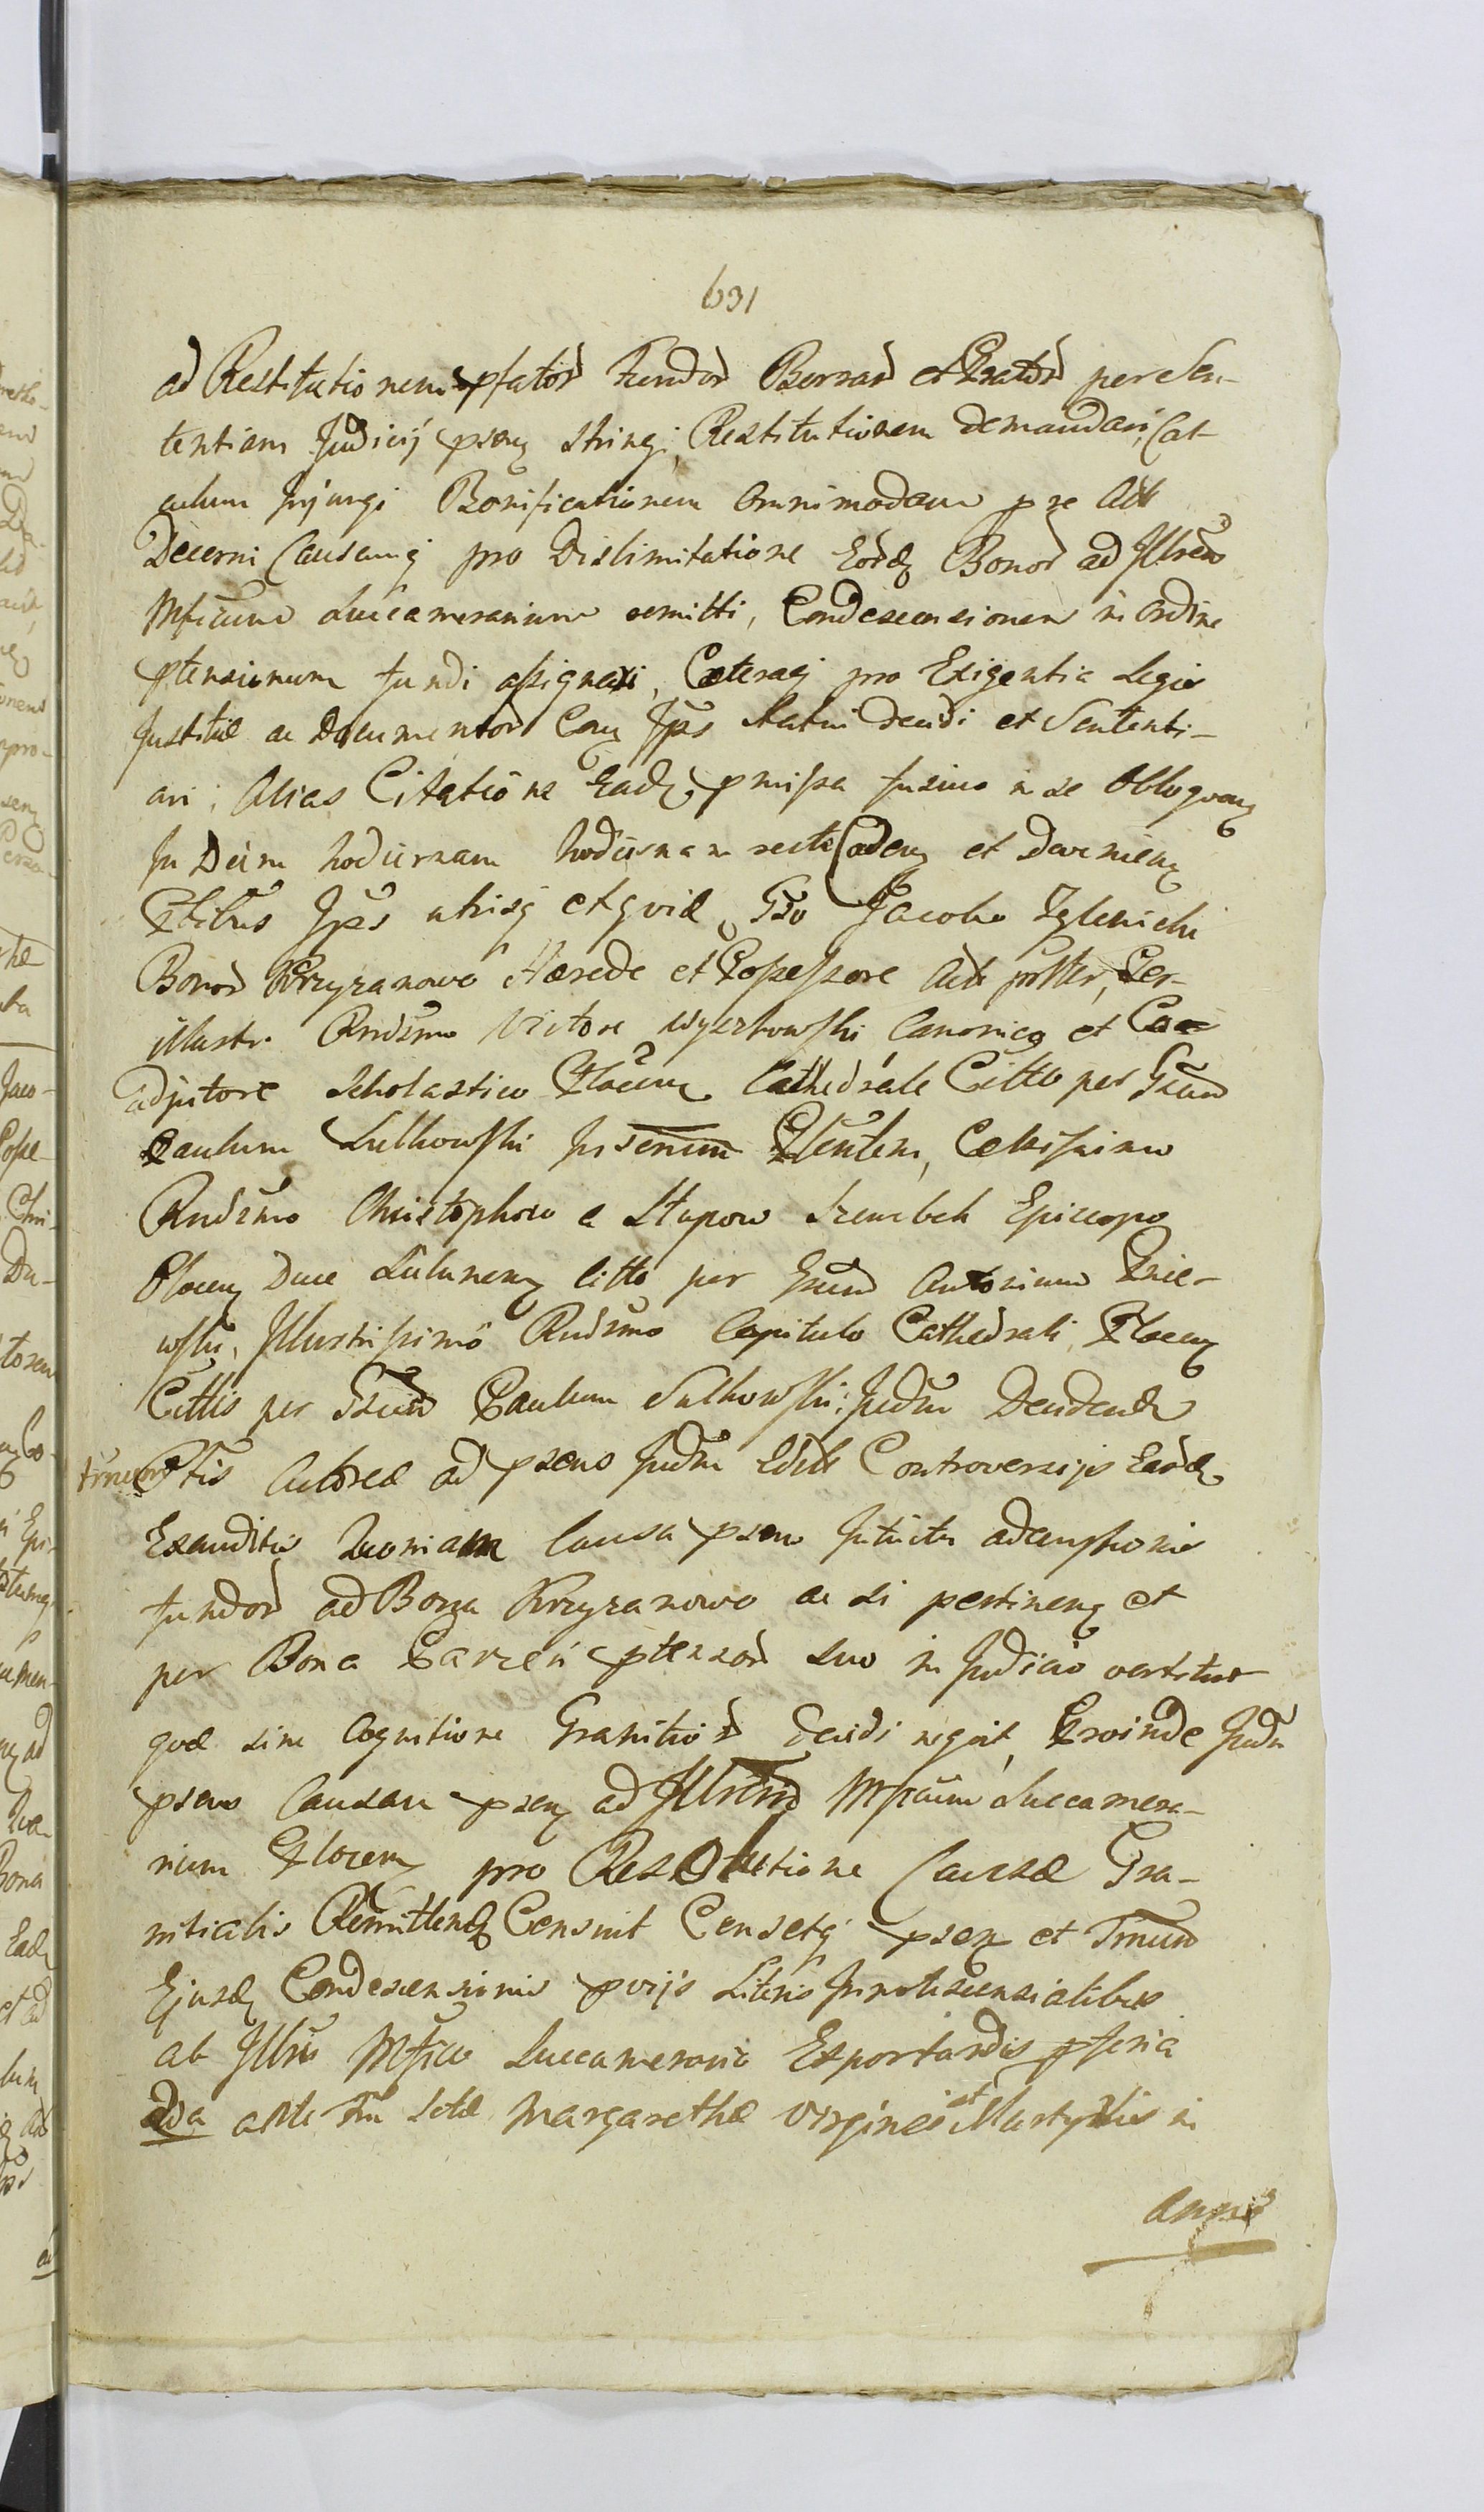 631
ad Restitutionem pſator Fundor Borrar et Exator per Sen-
tentiam Judicij psenz stringi, Restitutionem demandari, Cal-
culum Injungi Bonificationem Omnimodam pre Att
Decerni Causamq pro Dislimitatione Eordz Bonor ad Jllrem
Mficum Succamerarium remitti, Condescensionem in Ordine
ptensionum fundi aſsignari, Cæteraq pro Exigentia Legis
Justitiæ ac Documentor Conz Jps statui decidi et Sententi-
ari, Alias Citatione Eadz pmiſsa fusius in se Obloquenz
In Dein hodiernam hodiernam recte Cadenz et Devenienz
Ptibus Jps utrisq et quid. Gso Jacobo Zglenicki
Bonor Krzyzanowo Hærede et Poſseſsore Acte pſtter, Per-
illustr. Rndsmo Victore Wyszkowſki Canonico et Coa
adjutore Scholastico Plocenz Cathedrale Citto per Gsum
Paulum Sulkowſki Jn senum Plentem, Celsiſsimo
Rndsmo Christophoro a Slupow Szembek Episcopo
Plocenz Duce Pultunenz Citto per Gsum Antonium Pnie-
wſki, Jllustriſsimo Rndsmo Capitulo Cathedrali Plocenz
Cittis per Gsum Paulum Sulkowſki: Judm Decidend
tneum Ptis Actoreæ ad psens Judm Edit Controversijs Eardz
Exauditis Quoniam Causa psens Intuitu ademptionis
fundor ad Bona Krzyzanowo ac si pertinenz et
per Bona Parzeń ptensor suo in Judicio vertitur
quæ sine Cognitione Granitior Decidi neqvit, Proinde Judm
psens Causam psenz ad Jllrem Mficum Succamera-
rium Plocenz pro Resolutione Causæ Gra-
nitialis Remittendz Censuit Censetq psenz et Tmum
Ejusdz Condescensionis pvijs Literis Jnnotescensialibus
ab Jllri Mfico Succamerario Exportandis pferia
2da ante Fm Sctæ Margarethæ Virginis et Martyris in
Anno